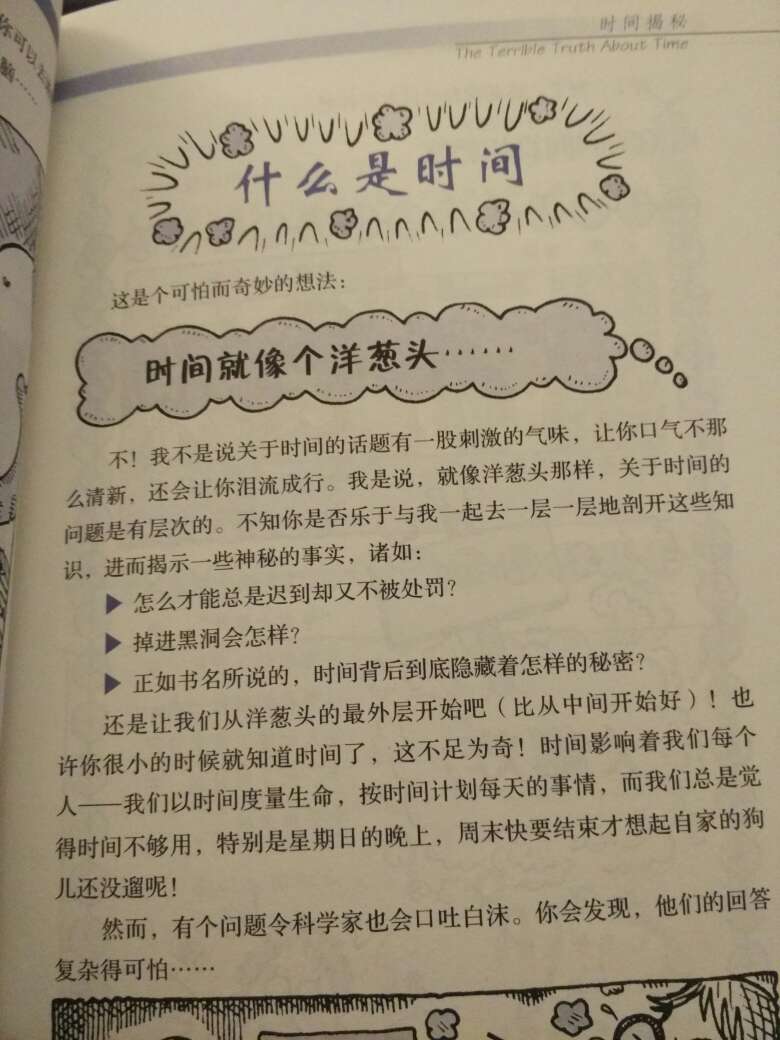 你可以去
时间揭秘
The Terrible Truth About Time
什么是时间
这是个可怕而奇妙的想法：
时间就像个洋葱头……
不！我不是说关于时间的话题有一股刺激的气味，让你口气不那
么清新，还会让你泪流成行。我是说，就像洋葱头那样，关于时间的
问题是有层次的。不知你是否乐于与我一起去一层一层地剖开这些知
识，进而揭示一些神秘的事实，诸如：
▶ 怎么才能总是迟到却又不被处罚？
▶ 掉进黑洞会怎样？
▶ 正如书名所说的，时间背后到底隐藏着怎样的秘密？
还是让我们从洋葱头的最外层开始吧（比从中间开始好）！也
许你很小的时候就知道时间了，这不足为奇！时间影响着我们每个
人——我们以时间度量生命，按时间计划每天的事情，而我们总是觉
得时间不够用，特别是星期日的晚上，周末快要结束才想起自家的狗
儿还没遛呢！
然而，有个问题令科学家也会口吐白沫。你会发现，他们的回答
复杂得可怕……